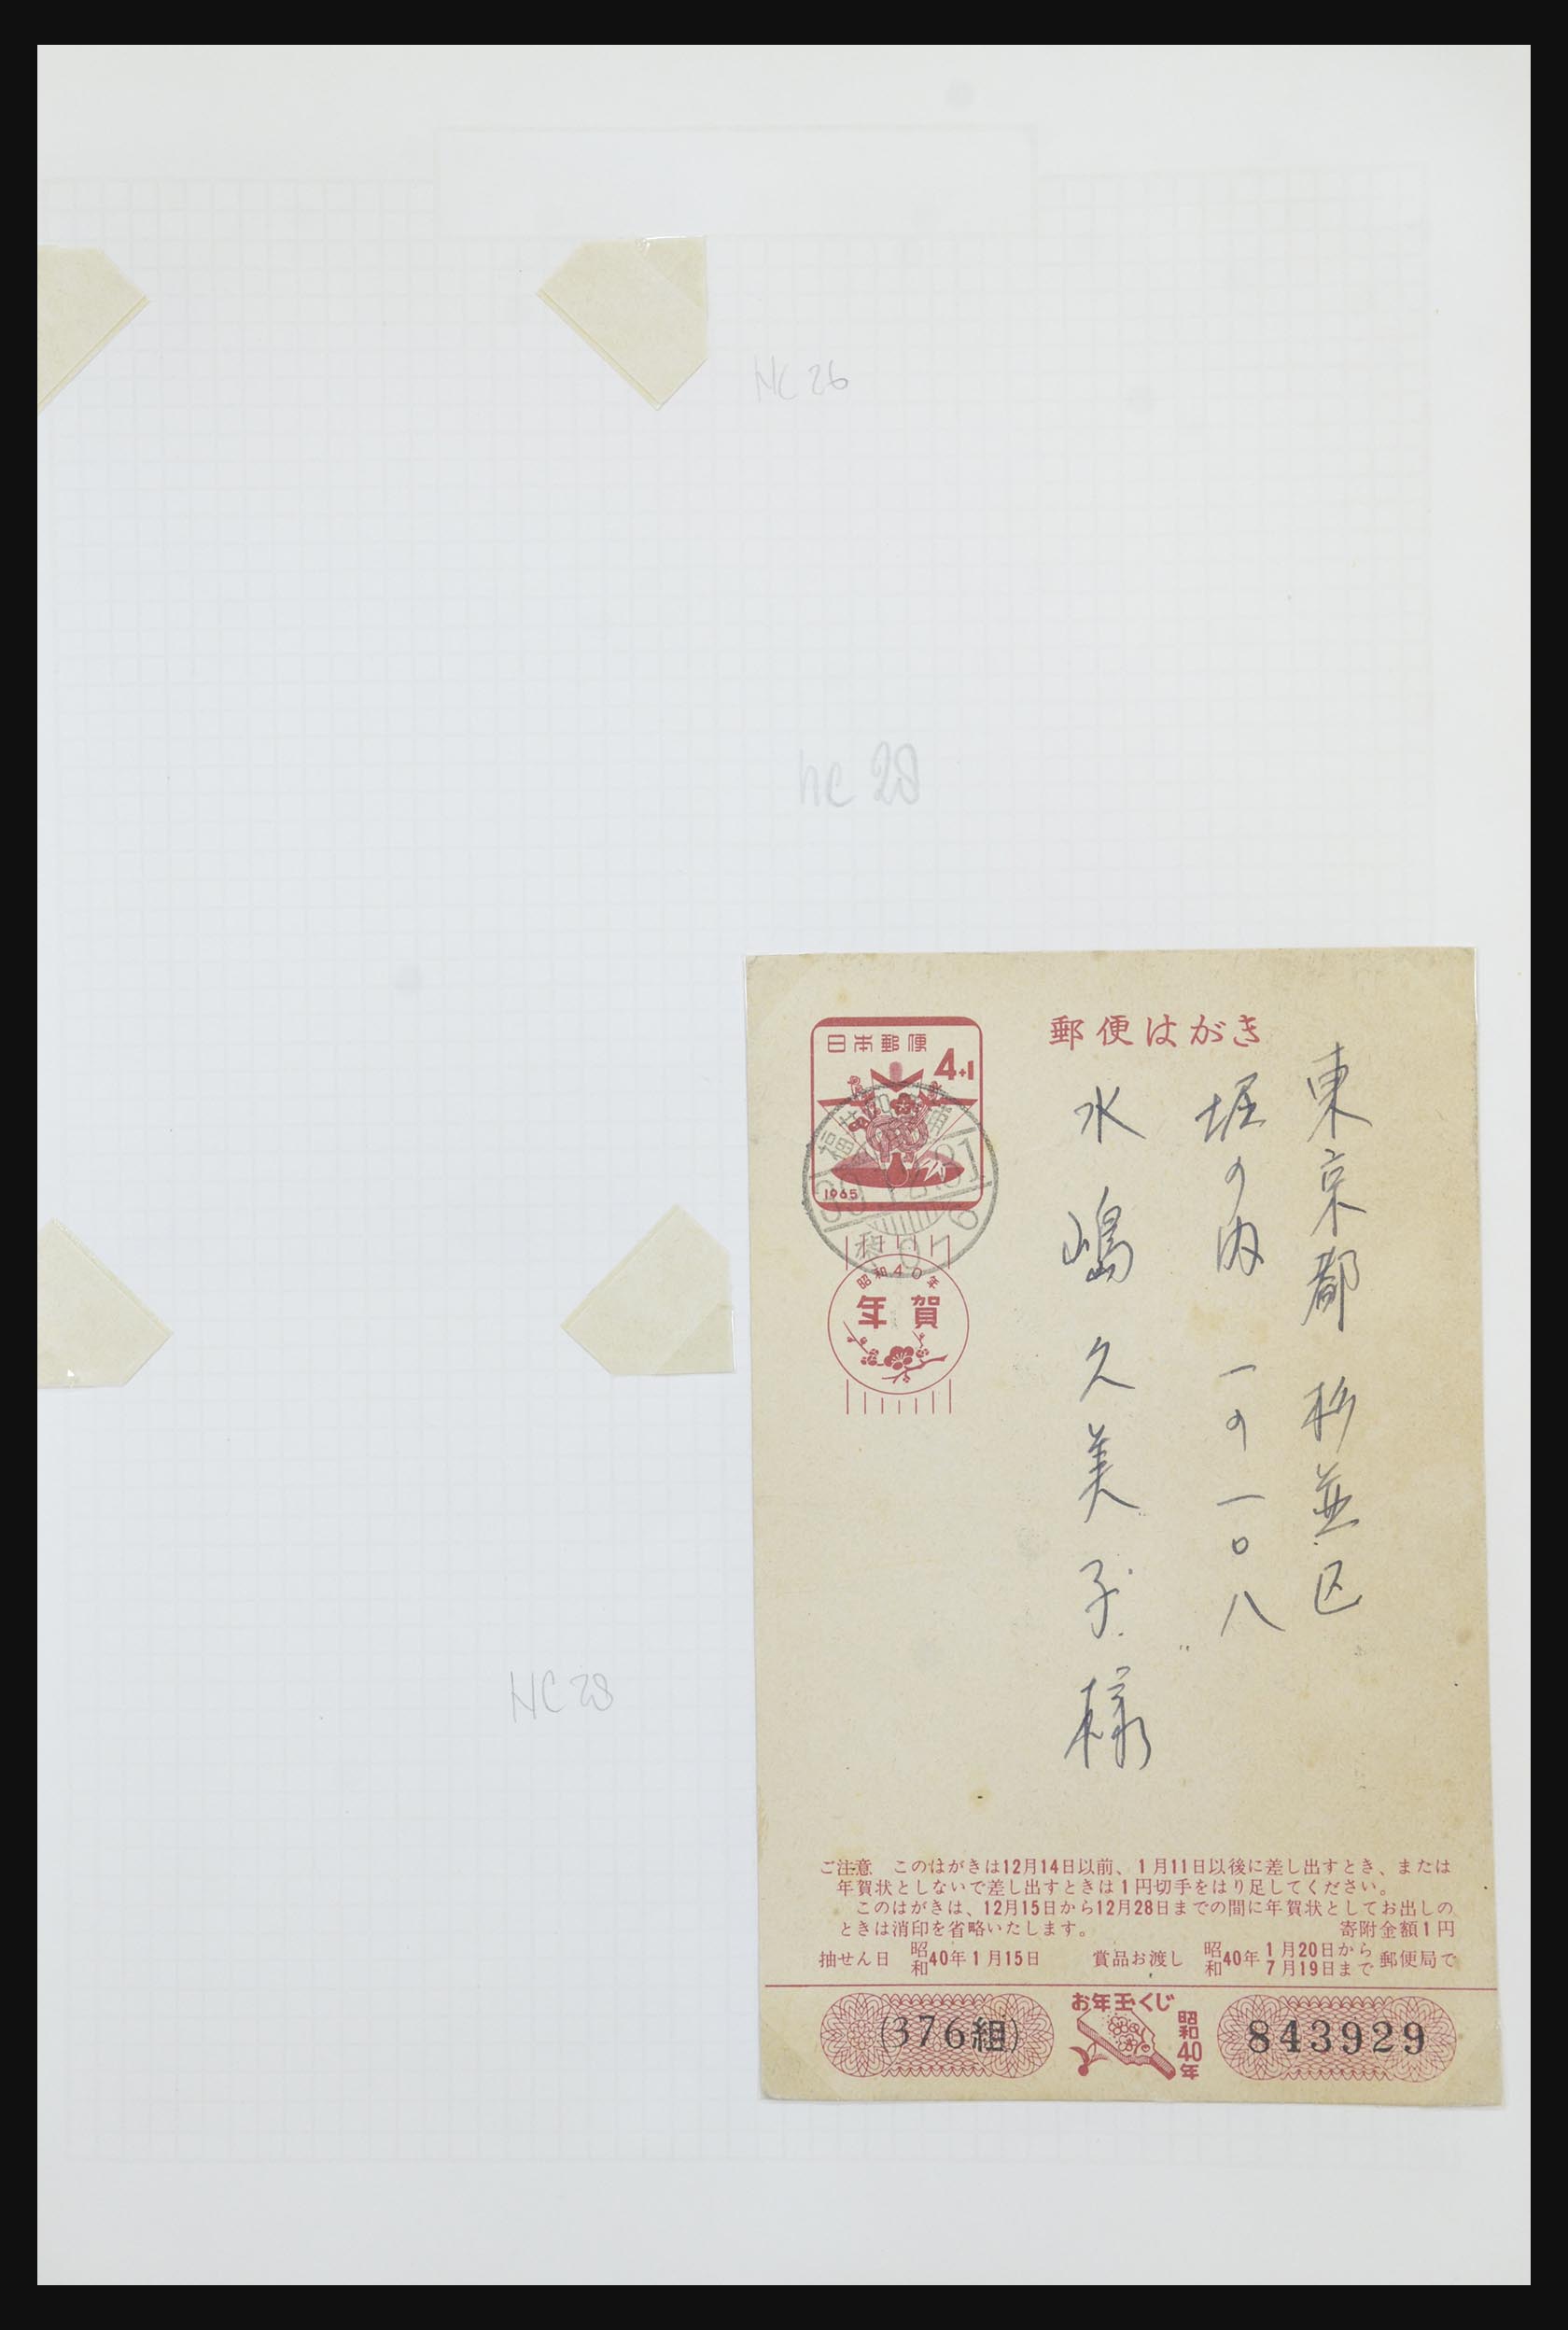 NC 26
nc 28
NC 28
郵便はがき
日本郵便
4+1
1965
昭和40年
年賀
東京都 杉並区
堀の内 一の一〇八
水嶋久美子様
ご注意 このはがきは12月14日以前、1月11日以後に差し出すとき、または
年賀状としないで差し出すときは1円切手をはり足してください。
このはがきは、12月15日から12月28日までの間に年賀状としてお出しの
ときは消印を省略いたします。 寄附金額1円
抽せん日 昭和40年1月15日 賞品お渡し 昭和40年 1月20日から 7月19日まで 郵便局で
(376組)
お年玉くじ
昭和40年
843929